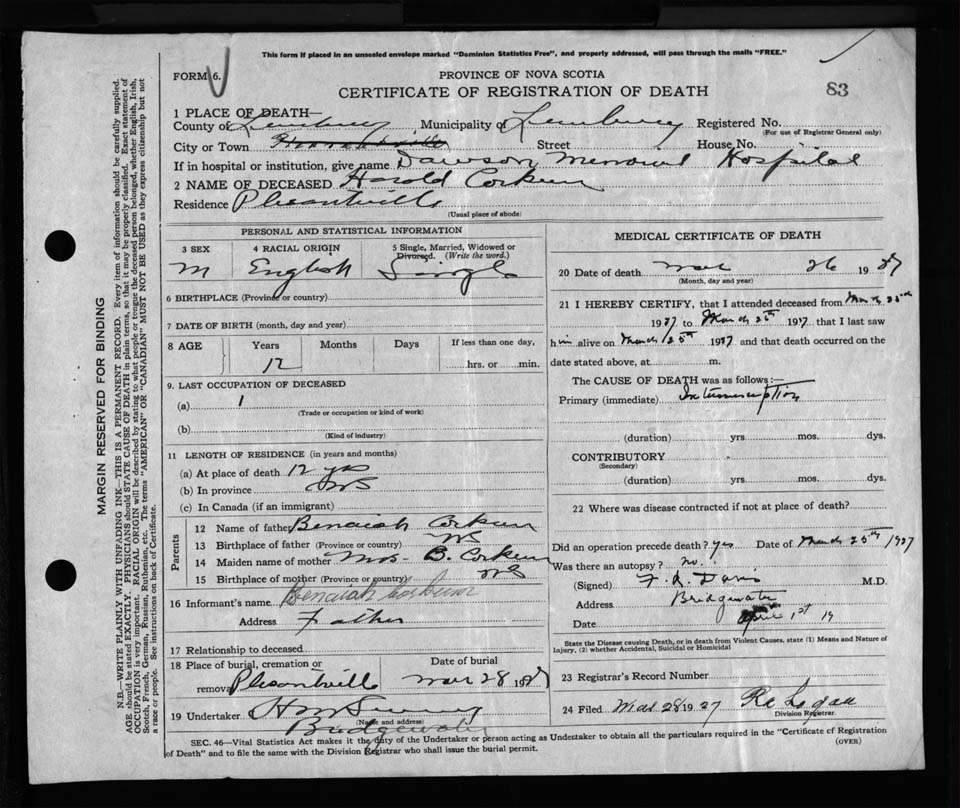 This form if placed in an unsealed envelope marked "Dominion Statistics Free", and properly addressed, will pass through the mails "FREE."
FORM 6.
PROVINCE OF NOVA SCOTIA
CERTIFICATE OF REGISTRATION OF DEATH
83
1 PLACE OF DEATH—
County of Lunenburg Municipality of Lunenburg Registered No.
(For use of Registrar General only)
City or Town Street House No.
If in hospital or institution, give name Dawson Memorial Hospital
2 NAME OF DECEASED Harold Corkum
Residence Pleasantville
(Usual place of abode)
PERSONAL AND STATISTICAL INFORMATION
3 SEX 4 RACIAL ORIGIN 5 Single, Married, Widowed or Divorced. (Write the word.)
M English Single
6 BIRTHPLACE (Province or country)
7 DATE OF BIRTH (month, day and year)
8 AGE Years Months Days If less than one day,
12 hrs. or min.
9. LAST OCCUPATION OF DECEASED
(a) 1
(Trade or occupation or kind of work)
(b)
(Kind of industry)
11 LENGTH OF RESIDENCE (in years and months)
(a) At place of death 12 yrs
(b) In province
(c) In Canada (if an immigrant)
Parents
12 Name of father Benaiah Corkum
13 Birthplace of father (Province or country) NS
14 Maiden name of mother Mrs. B. Corkum
15 Birthplace of mother (Province or country) NS
16 Informant's name Benaiah Corkum
Address Father
17 Relationship to deceased
18 Place of burial, cremation or removal Pleasantville Date of burial Mar 28 1927
19 Undertaker
(Name and address)
Bridgewater
MEDICAL CERTIFICATE OF DEATH
20 Date of death Mar 26 1927
(Month, day and year)
21 I HEREBY CERTIFY, that I attended deceased from March 25th
1927 to March 26th 1927 that I last saw
him alive on March 25th 1927 and that death occurred on the
date stated above, at m.
The CAUSE OF DEATH was as follows:—
Primary (immediate) Intussusception
(duration) yrs. mos. dys.
CONTRIBUTORY
(Secondary)
(duration) yrs. mos. dys.
22 Where was disease contracted if not at place of death?
Did an operation precede death? yes Date of March 25th 1927
Was there an autopsy? no.
(Signed) F. A. Davis M.D.
Address Bridgewater
Date April 1st 19
State the Disease causing Death, or in death from Violent Causes, state (1) Means and Nature of
Injury, (2) whether Accidental, Suicidal or Homicidal
23 Registrar's Record Number
24 Filed Mar 28 1927 Logan
Division Registrar.
SEC. 46—Vital Statistics Act makes it the duty of the Undertaker or person acting as Undertaker to obtain all the particulars required in the "Certificate of Registration
of Death" and to file the same with the Division Registrar who shall issue the burial permit. (OVER)
MARGIN RESERVED FOR BINDING
N.B.—WRITE PLAINLY WITH UNFADING INK—THIS IS A PERMANENT RECORD. Every item of information should be carefully supplied.
AGE should be stated EXACTLY. PHYSICIANS should STATE CAUSE OF DEATH in plain terms, so that it may be properly classified. Exact statement of
OCCUPATION is very important. RACIAL ORIGIN will be described by stating to what people or tongue the deceased person belonged, whether English, Irish,
Scotch, French, German, Russian, Ruthenian, etc. The terms "AMERICAN" OR "CANADIAN" MUST NOT BE USED as they express citizenship but not
a race or people. See instructions on back of Certificate.